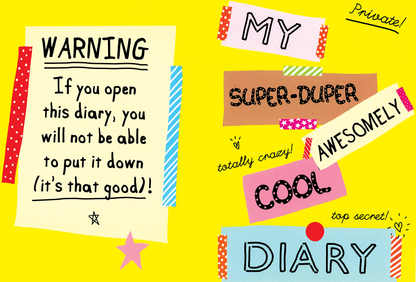 WARNING
If you open
this diary, you
will not be able
to put it down
(it's that good)!
Private!
MY
SUPER-DUPER
AWESOMELY
totally crazy!
COOL
top secret!
DIARY